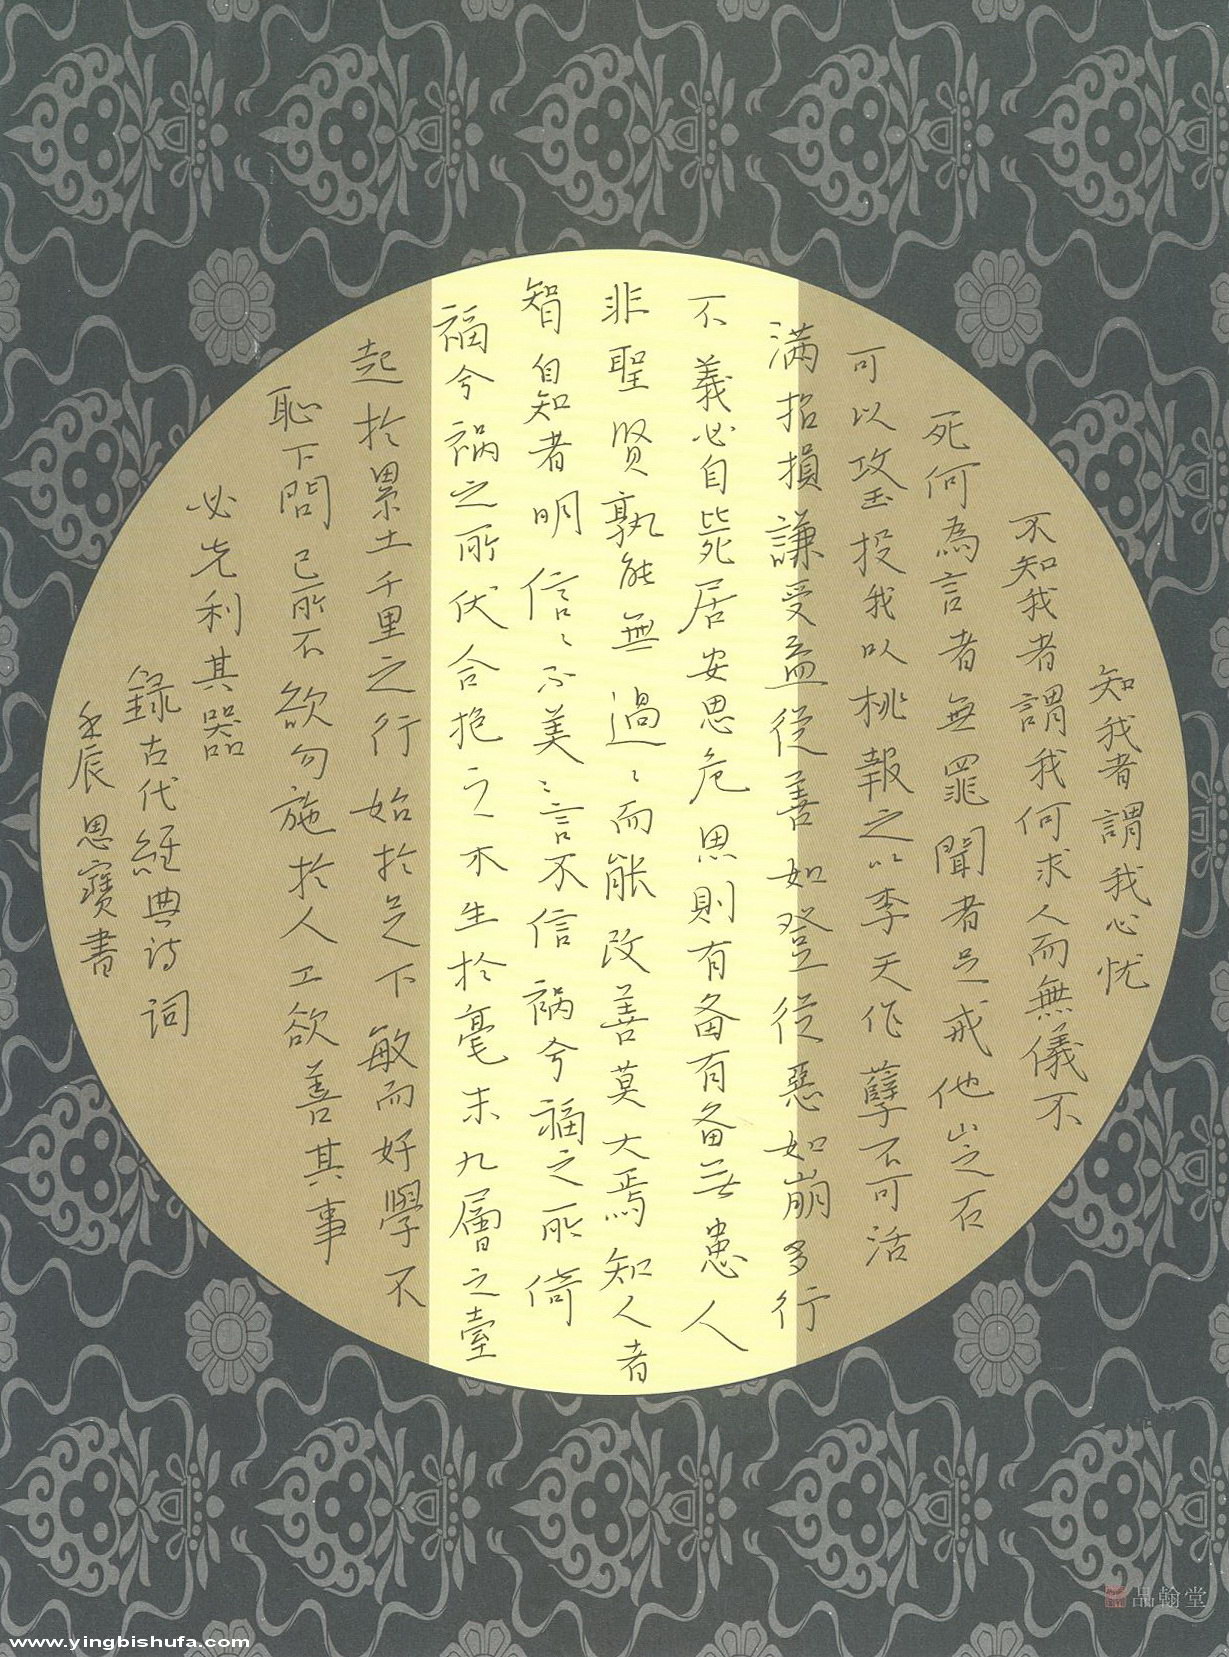 知我者謂我心忧
不知我者謂我何求人而無儀不
死何為言者無罪聞者足戒他山之石
可以攻玉投我以桃報之以李天作孽不可活
满招損謙受益從善如登從惡如崩多行
不義必自毙居安思危思則有备有备无患人
非聖贤孰能無過〻而能改善莫大焉知人者
智自知者明信〻不美〻言不信祸兮福之所倚
福兮祸之所伏合抱之木生於毫末九層之臺
起於累土千里之行始於足下敏而好學不
恥下問己所不欲勿施於人工欲善其事
必先利其器
録古代經典诗词
壬辰思寶書
品翰堂
www.yingbishufa.com